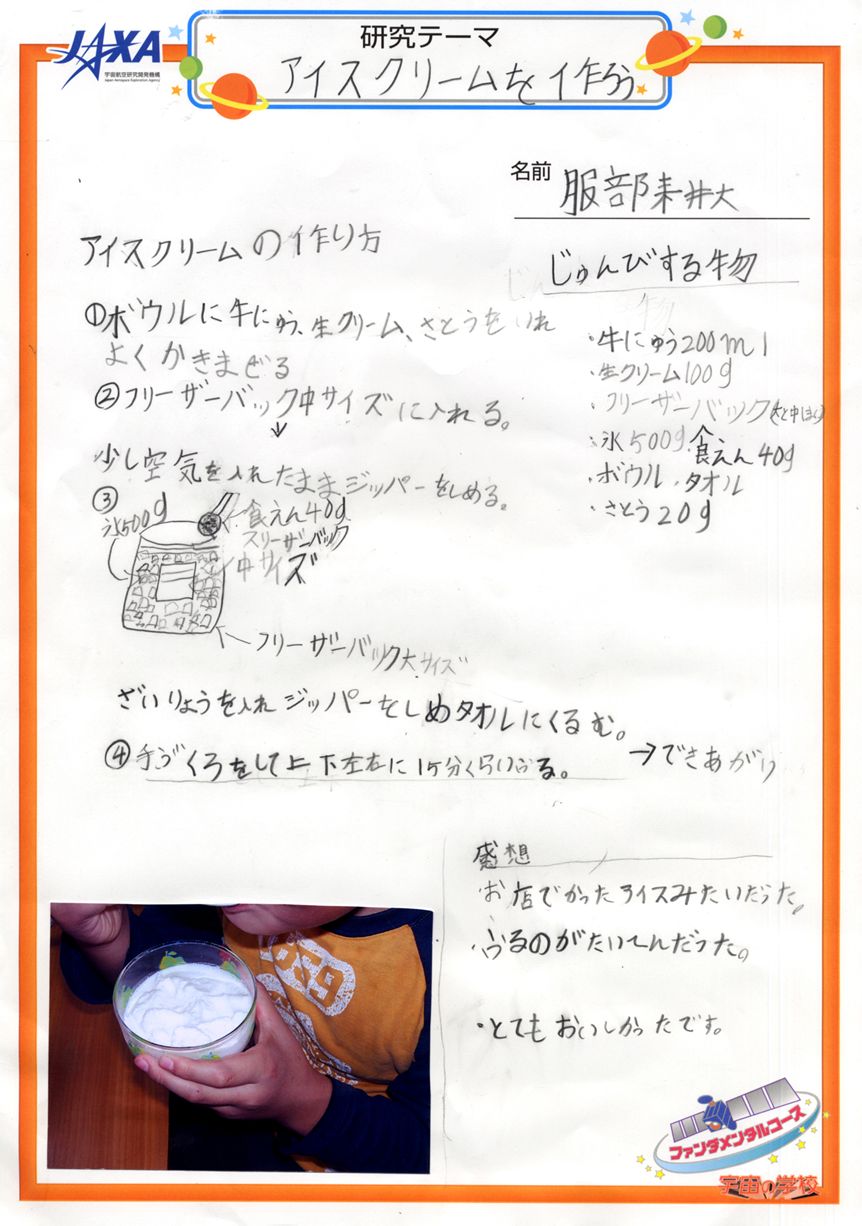 JAXA
宇宙航空研究開発機構
Japan Aerospace Exploration Agency
研究テーマ
アイスクリームを作ろう
名前 服部
アイスクリームの作り方
じゅんびする物
①ボウルに牛にゅう、生クリーム、さとうをいれ
よくかきまぜる
②フリーザーバック中サイズに入れる。
↓
少し空気を入れたままジッパーをしめる。
・牛にゅう200ml
・生クリーム100g
・フリーザーバック
・氷500g 食えん40g
・ボウル・タオル
・さとう20g
③
氷500g
食えん40g
スリーザーバック
中サイズ
フリーザーバック大サイズ
ざいりょうを入れジッパーをしめタオルにくるむ。
④手ぶくろをして上下左右に15分くらいふる。
→できあがり
感想
・お店でかったアイスみたいだった。
・ふるのがたいへんだった。
・とてもおいしかったです。
ファンダメンタルコース
宇宙の学校